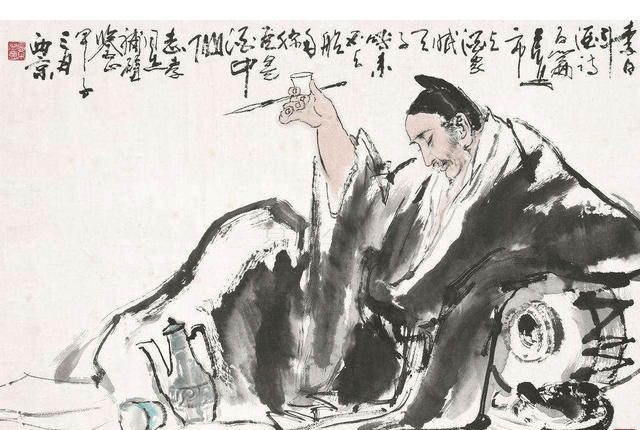 李白
斗
酒诗
百篇
長安
市
上
酒家
眠
天
子
呼来
不上
船
自
称
臣是
酒中
仙
同志
補壁
甲子
三月
西京